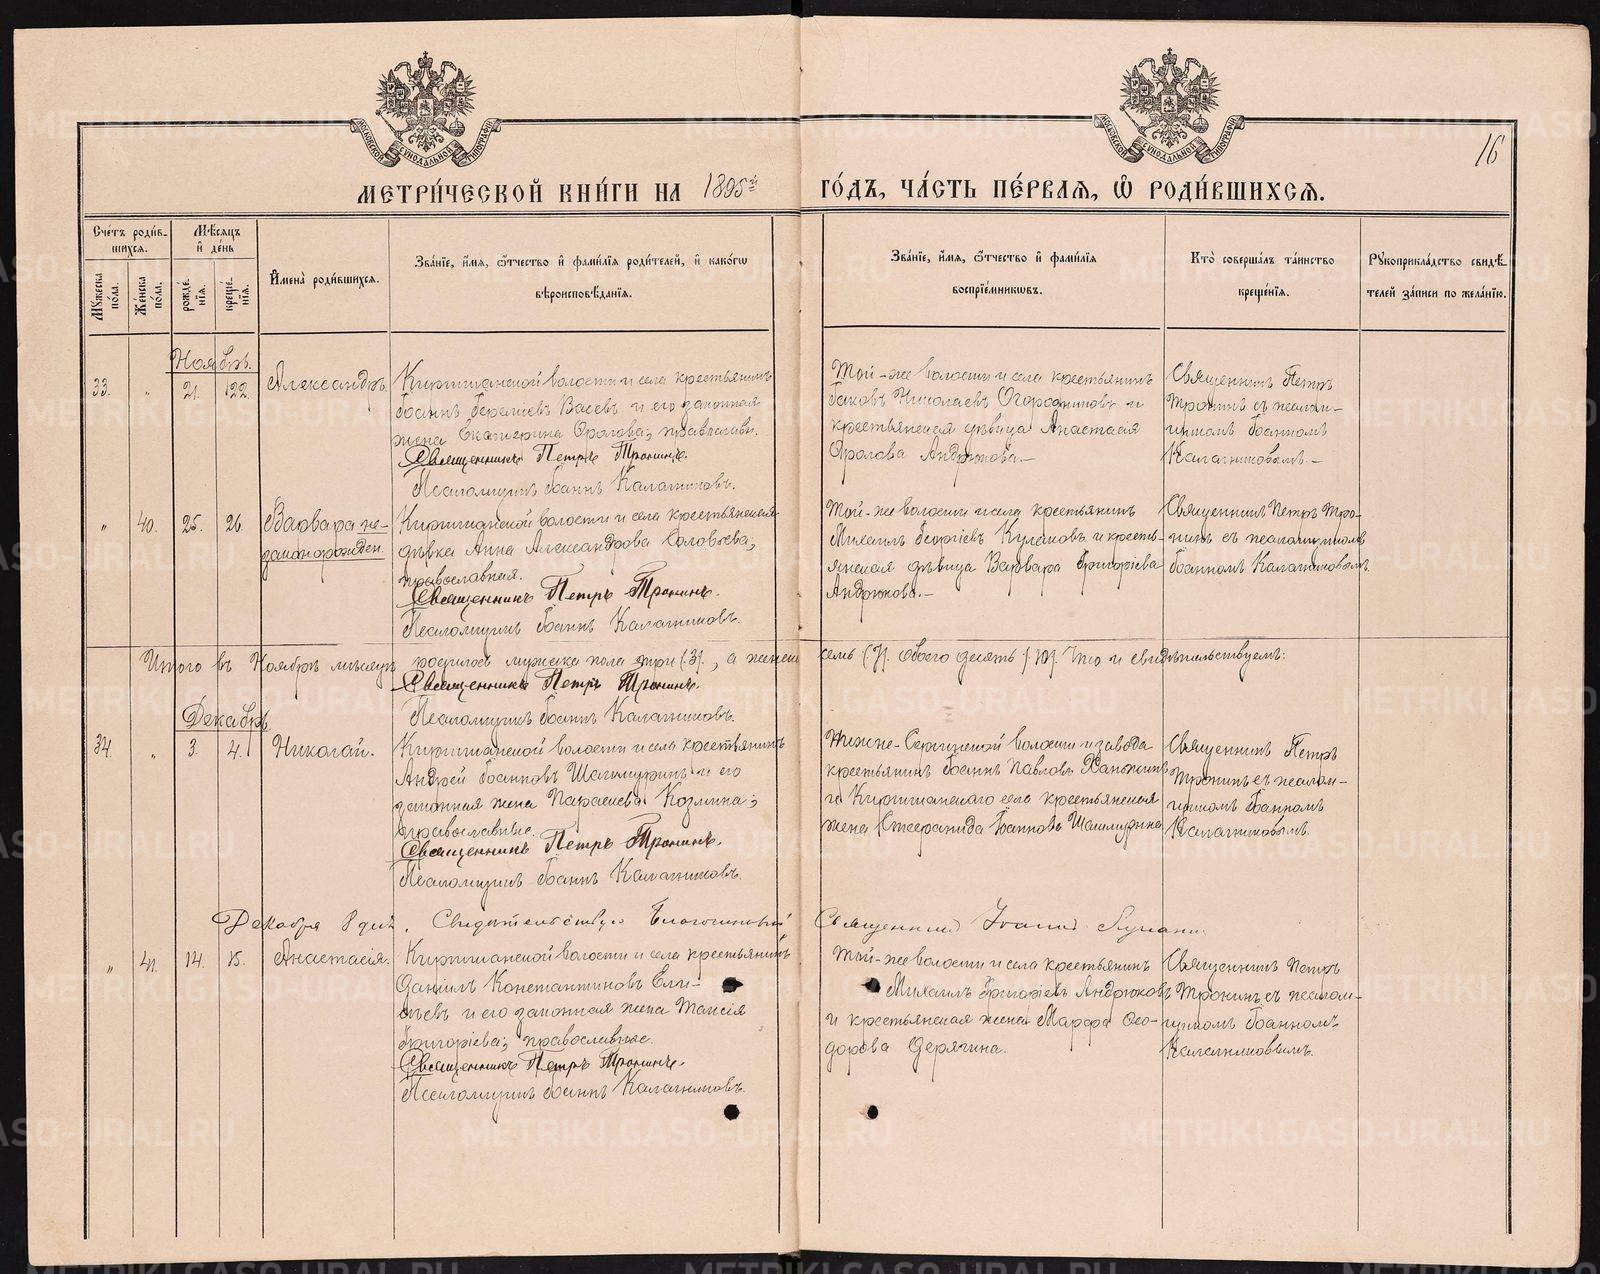 МОСКОВСКОЙ СУНОДАЛЬНОЙ ТИПОГРАФІИ
МОСКОВСКОЙ СУНОДАЛЬНОЙ ТИПОГРАФІИ
16
МЕТРИ́ЧЕСКОЙ КНИ́ГИ НА 1895й
ГО́ДЪ, ЧА́СТЬ ПЕ́РВАѦ, Ѽ РОДИ́ВШИХСѦ.
Сче́тъ роди́в-
шихсѧ.
Мꙋ́жеска по́ла.
Же́нска по́ла.
Мѣ́сѧцъ
и де́нь
рожде́нїѧ.
креще́нїѧ.
Имена̀ роди́вшихсѧ.
Зва́нїе, и́мѧ, ѻ҆́тчество и фами́лїѧ роди́телей, и како́гѡ
вѣроисповѣ́данїѧ.
Зва́нїе, и́мѧ, ѻ҆́тчество и фами́лїѧ
воспрїе́мникѡвъ.
Кто̀ соверша́лъ та́инство
креще́нїѧ.
Рꙋкоприкла́дство свидѣ́-
телей за́писи по жела́нїю.
Ноябрь.
33. " 21. 22. Александръ.
Киргишанской волости и села крестьянинъ
Іоаннъ Васевъ и его законная
жена Екатерина Фролова, православн.
Священникъ Петръ Тронинъ.
Псаломщикъ Іоаннъ Калашниковъ.
Той-же волости и села крестьянинъ
Іаковъ Николаевъ Огородниковъ и
крестьянская дѣвица Анастасія
Фролова Андрюкова.-
Священникъ Петръ
Тронинъ съ псалом-
щикомъ Іоанномъ
Калашниковымъ.-
" 40. 25. 26. Варвара не-
законорожден.
Киргишанской волости и села крестьянская
дѣвка Анна Александрова Соловьева,
православная.
Священникъ Петръ Тронинъ.
Псаломщикъ Іоаннъ Калашниковъ.
Той-же волости и села крестьянинъ
Михаилъ Георгіевъ Кулаковъ и кресть-
янская дѣвица Варвара Григоріева
Андрюкова.-
Священникъ Петръ Тро-
нинъ съ псаломщикомъ
Іоанномъ Калашниковымъ.
Итого въ Ноябрѣ мѣсяцѣ родилось мужска пола три (3), а женска семь (7). Обоего десять (10). Что и свидѣтельствуемъ:
Священникъ Петръ Тронинъ.
Псаломщикъ Іоаннъ Калашниковъ.
Декабрь
34. " 3. 4. Николай.
Киргишанской волости и села крестьянинъ
Андрей Іоанновъ Шагимуринъ и его
законная жена Параскева Козмина;
православные.
Священникъ Петръ Тронинъ.
Псаломщикъ Іоаннъ Калашниковъ.
Нижне-Сергинской волости и завода
крестьянинъ Іоаннъ Павловъ
и Киргишанскаго села крестьянская
жена Іоаннова
Священникъ Петръ
Тронинъ съ псалом-
щикомъ Іоанномъ
Калашниковымъ.
Декабря 8 дня. Свидѣтельствую Благочинный Священникъ
" 41. 14. 15. Анастасія.
Киргишанской волости и села крестьянинъ
Даніилъ Константиновъ Ели-
сѣевъ и его законная жена Таисія
Григоріева; православные.
Священникъ Петръ Тронинъ.
Псаломщикъ Іоаннъ Калашниковъ.
Той-же волости и села крестьянинъ
Михаилъ Григоріевъ Андрюковъ
и крестьянская жена Марфа Ѳео-
дорова Дерягина.
Священникъ Петръ
Тронинъ съ псалом-
щикомъ Іоанномъ
Калашниковымъ.
METRIKI.GASO-URAL.RU